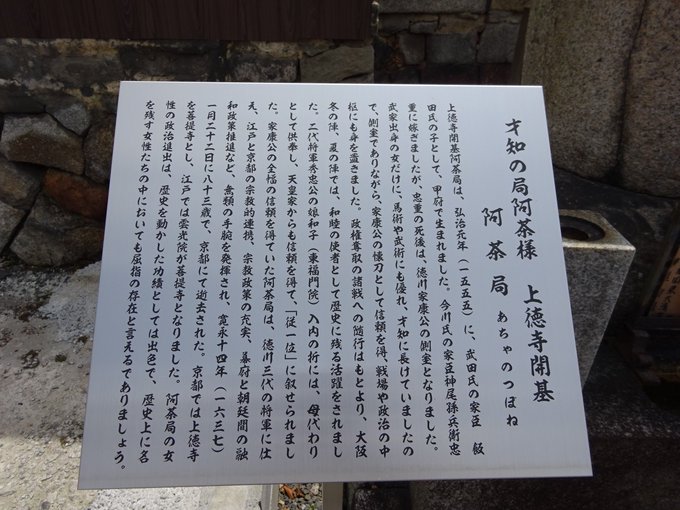 才知の局阿茶様　上徳寺開基
阿茶局　あちゃのつぼね
上徳寺開基阿茶局は、弘治元年（一五五五）に、武田氏の家臣　飯
田氏の子として、甲府で生まれました。今川氏の家臣神尾孫兵衛忠
重に嫁ぎましたが、忠重の死後は、徳川家康公の側室となりました。
武家出身の女だけに、馬術や武術にも優れ、才知に長けていましたの
で、側室でありながら、家康公の懐刀として信頼を得、戦場や政治の中
枢にも身を置きました。政権奪取の諸戦への随行はもとより、大阪
冬の陣、夏の陣では、和睦の使者として歴史に残る活躍をされまし
た。二代将軍秀忠公の娘和子（東福門院）入内の折には、母代わり
として供奉し、天皇家からも信頼を得て、「従一位」に叙せられまし
た。家康公の全幅の信頼を得ていた阿茶局は、徳川三代の将軍に仕
え、江戸と京都の宗教的連携、宗教政策の充実、幕府と朝廷間の融
和政策推進など、無類の手腕を発揮され、寛永十四年（一六三七）
一月二十二日に八十三歳で、京都にて逝去された。京都では上徳寺
を菩提寺とし、江戸では雲光院が菩提寺となりました。阿茶局の女
性の政治進出は、歴史を動かした功績としては出色で、歴史上に名
を残す女性たちの中においても屈指の存在と言えるでありましょう。